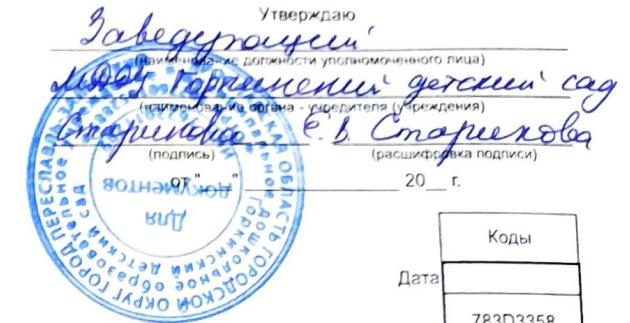 Утверждаю
Заведующий
(наименование должности уполномоченного лица)
МДОУ Горкинский детский сад
(наименование органа - учредителя (учреждения)
Старикова Е.В. Старикова
(подпись) (расшифровка подписи)
от " " 20 г.
Для документов
ОБЛАСТЬ ГОРОДСКОЙ ОКРУГ ГОРОД ПЕРЕСЛАВЛЬ
дошкольное образовательное
Горкинский детский сад
Коды
Дата
783D3358